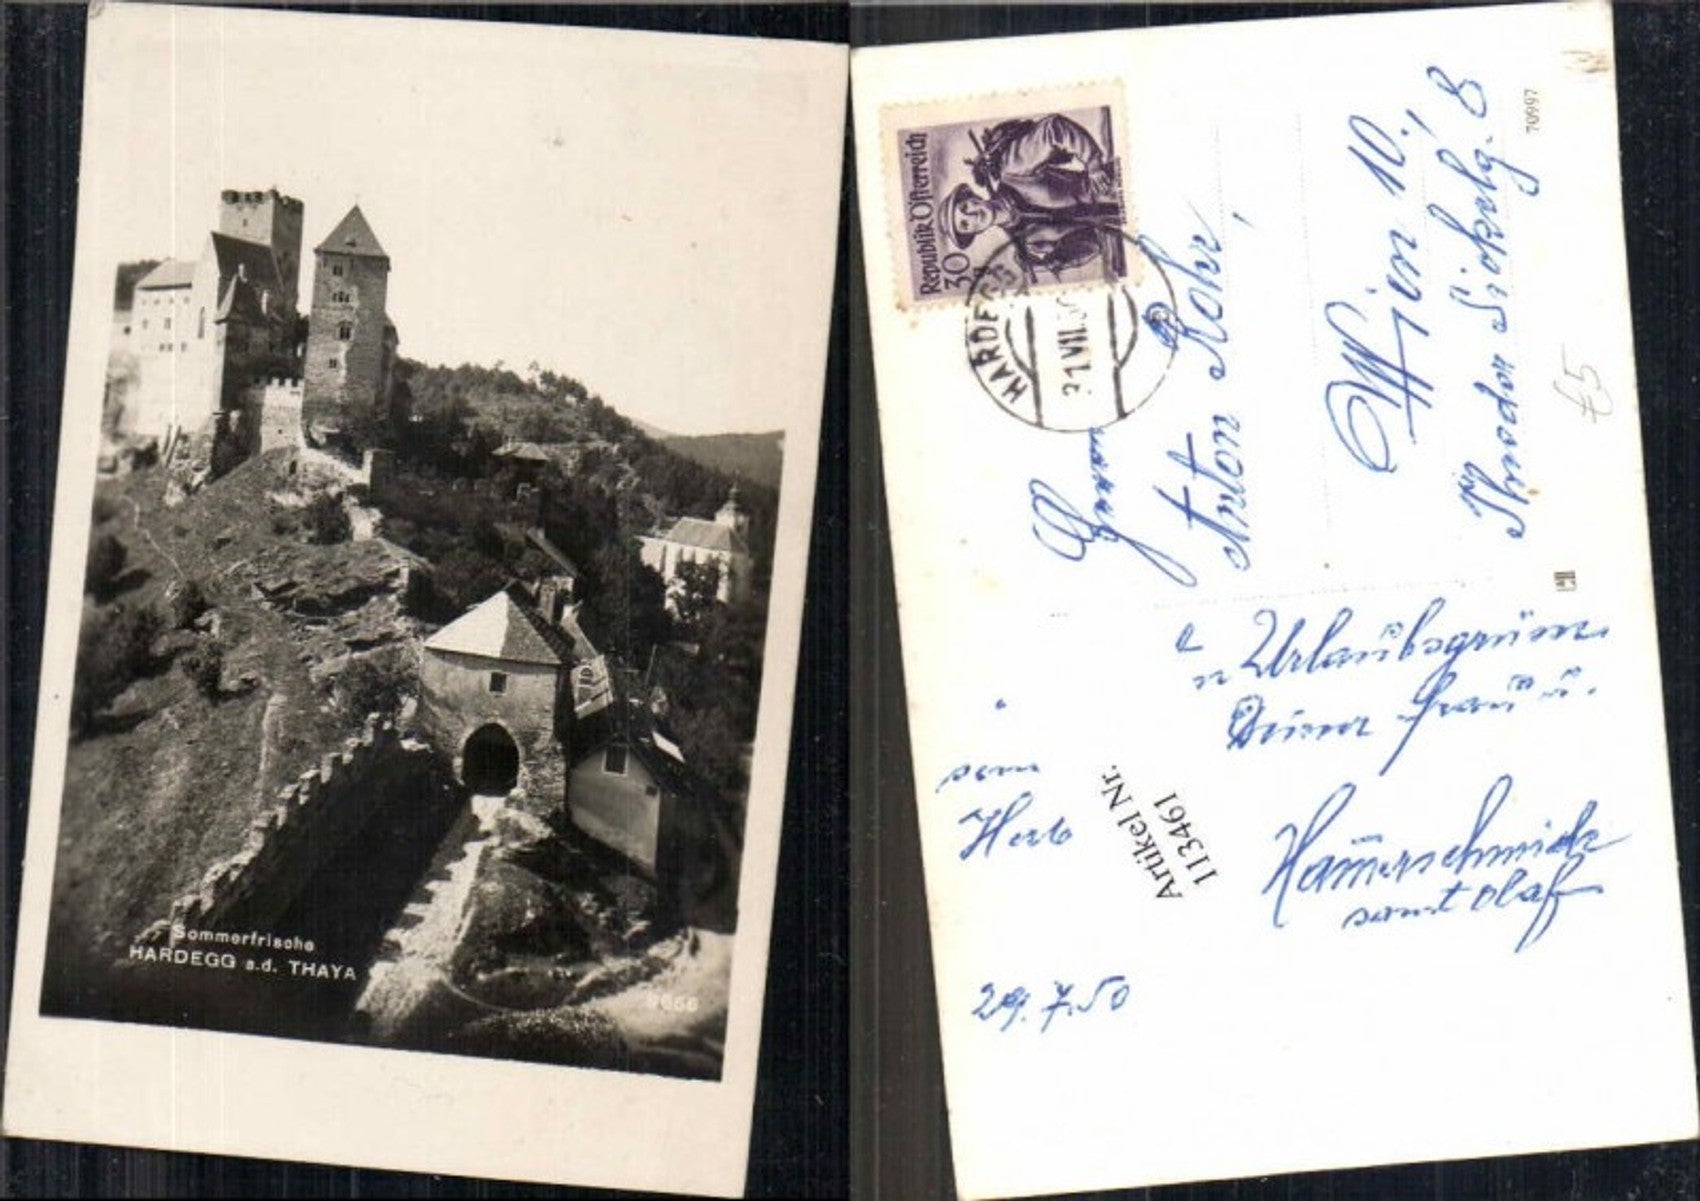 Sommerfrische
HARDEGG a.d. THAYA
9656
Republik Österreich
30
HARDEGG
31.VII.50
Herrn
Anton Rohr,
Wien 10.,
Theodor Sickelg. 8
70997
£5
Urlaubsgrüße
Deiner Frau u.
Hammerschmidt
samt Olaf
Herb
29.7.50
Artikel Nr.
113461